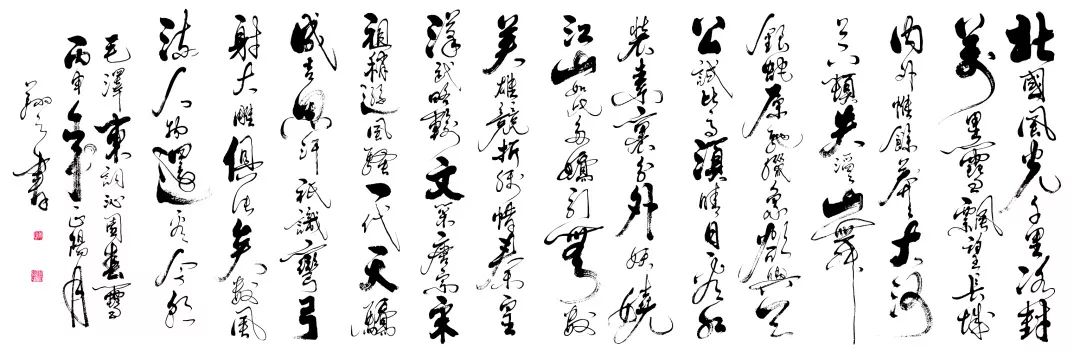 北國風光千里冰封
萬里雪飄望長城
內外惟餘莽莽大河
上下頓失滔滔山舞
銀蛇原馳蠟象欲與天
公試比高須晴日看紅
裝素裹分外妖嬈
江山如此多嬌引無數
英雄競折腰惜秦皇
漢武略輸文采唐宗宋
祖稍遜風騷一代天驕
成吉思汗祇識彎弓
射大雕俱往矣數風
流人物還看今朝
毛澤東詞沁園春雪
丙申年正陽月
書